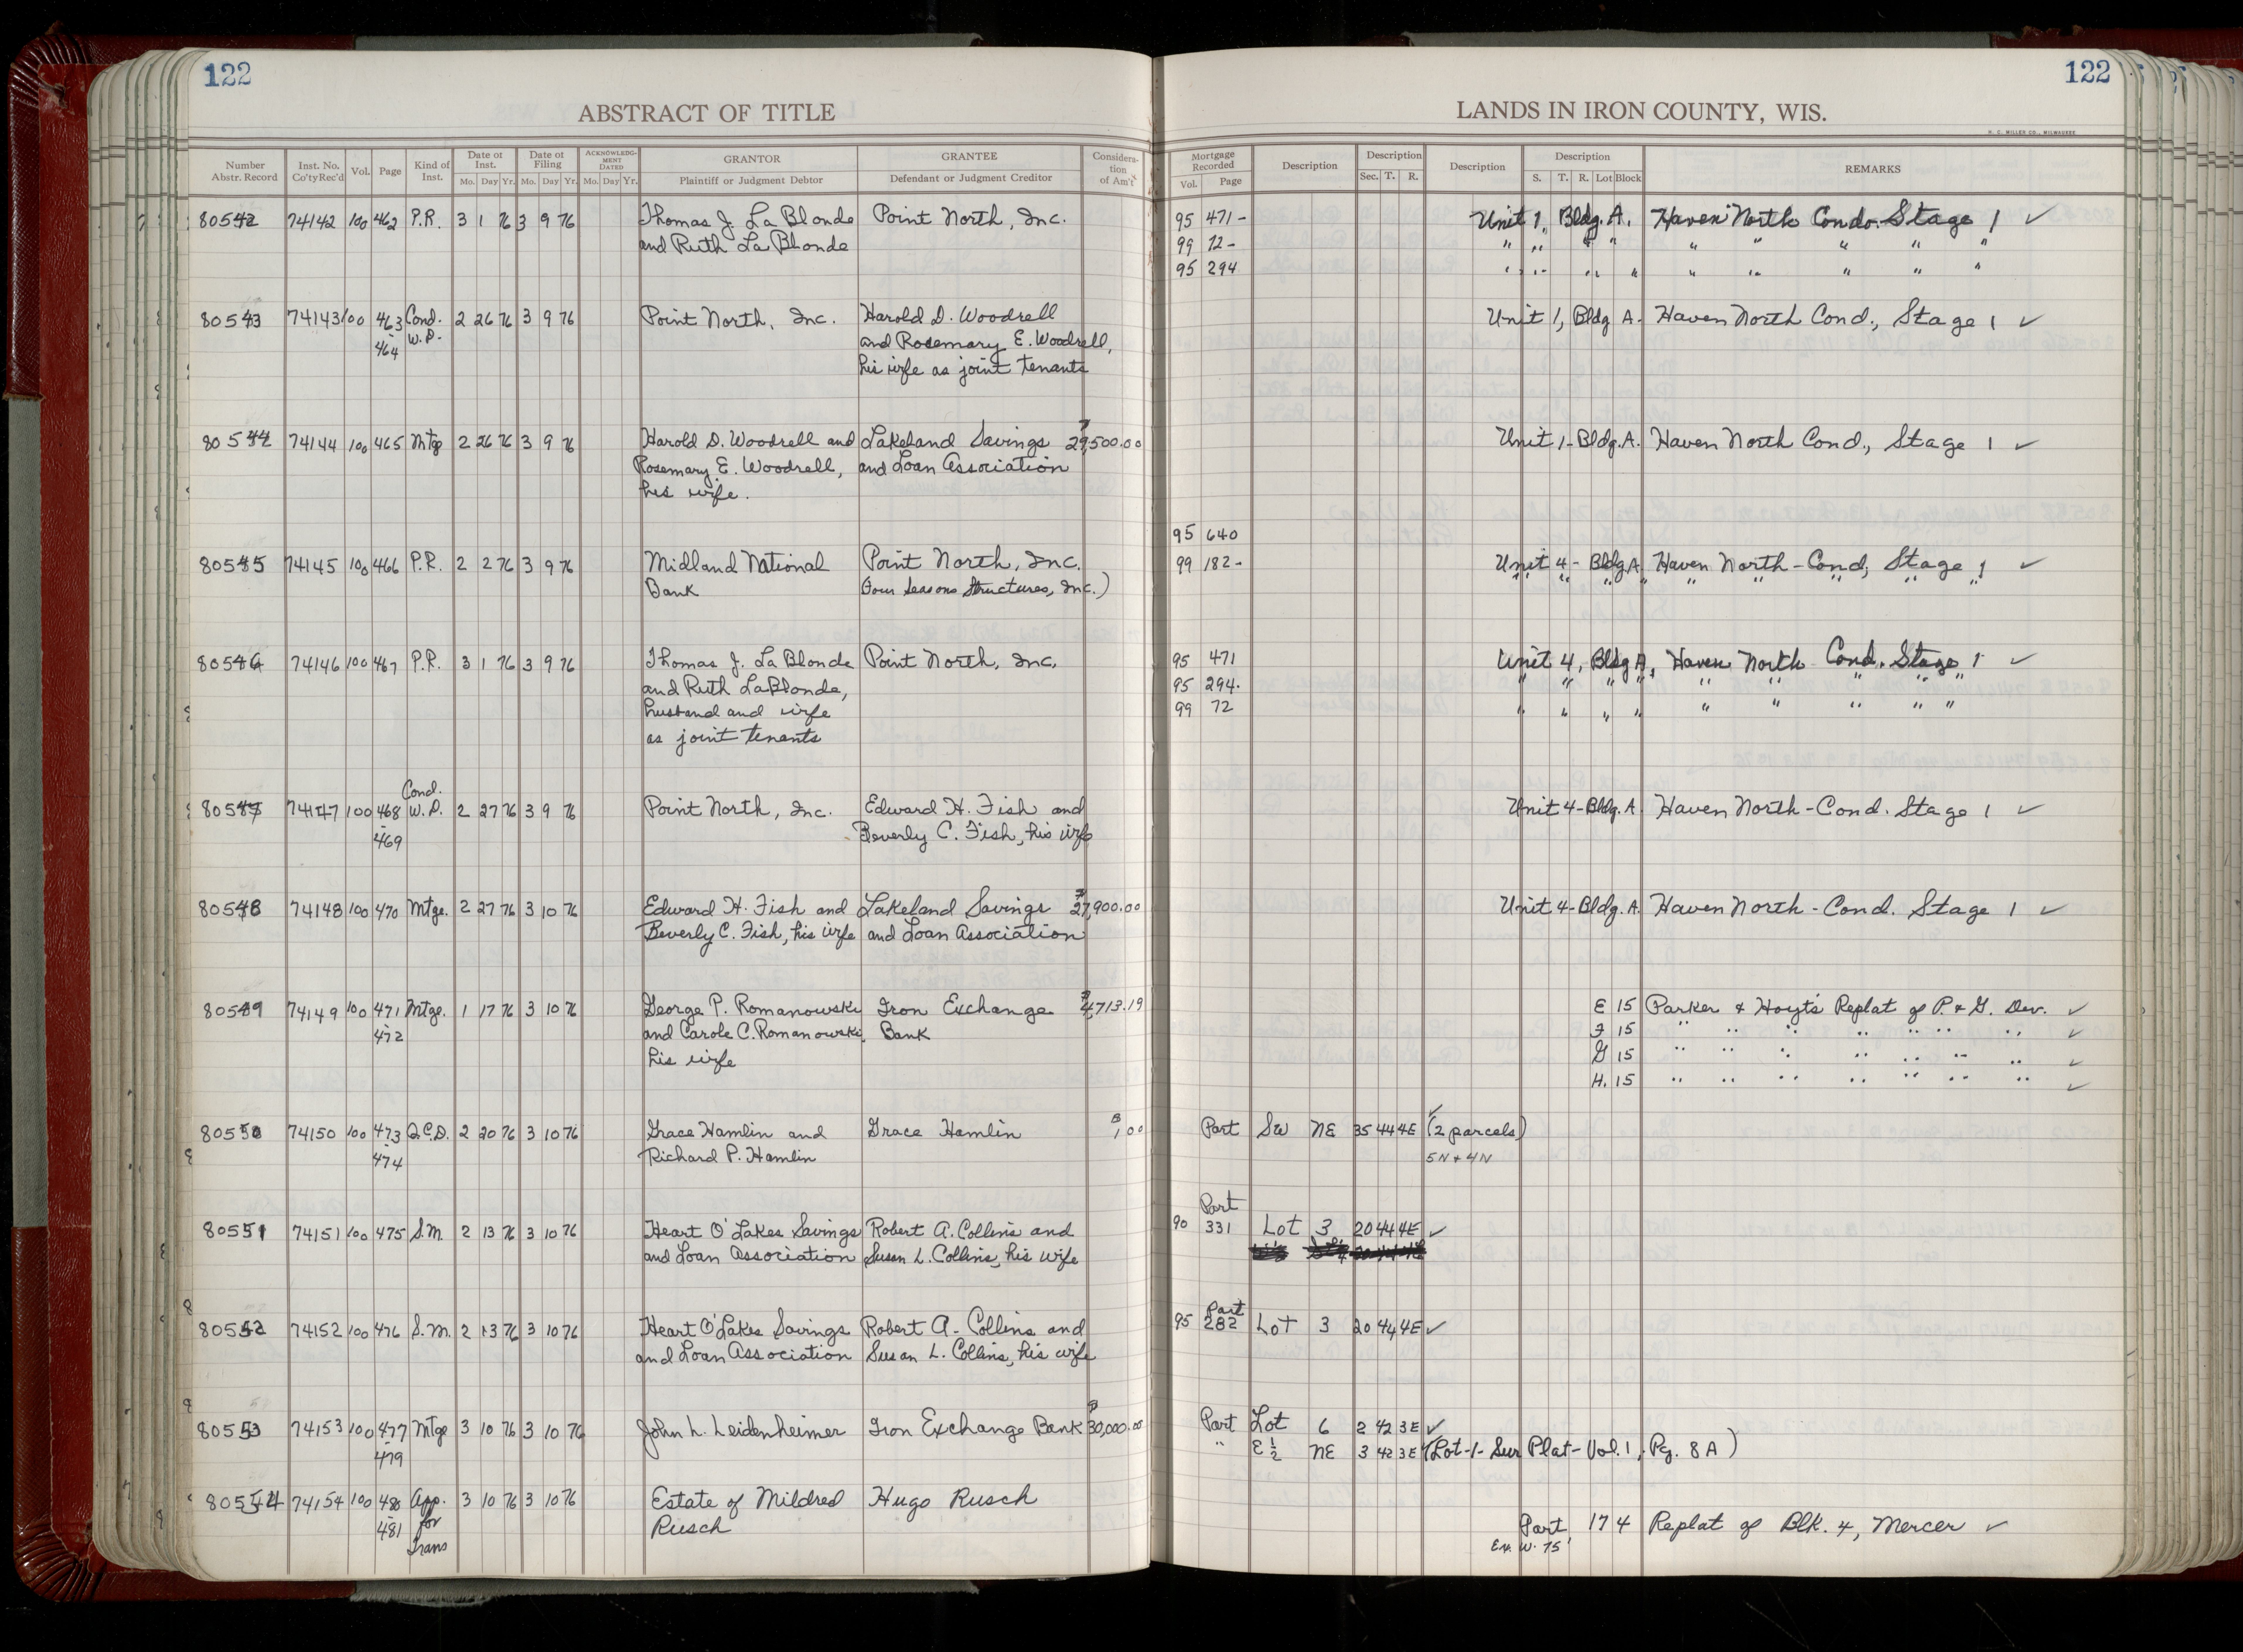 122
122
ABSTRACT OF TITLE
LANDS IN IRON COUNTY, WIS.
H. C. MILLER CO., MILWAUKEE
Number Abstr. Record Inst. No. Co'ty Rec'd Vol. Page Kind of Inst. Date of Inst. Mo. Day Yr. Date of Filing Mo. Day Yr. ACKNOWLEDGMENT DATED Mo. Day Yr. GRANTOR Plaintiff or Judgment Debtor GRANTEE Defendant or Judgment Creditor Consideration of Am't
Mortgage Recorded Vol. Page Description Description Sec. T. R. Description Description S. T. R. Lot Block REMARKS
80542 74142 100 462 P.R. 3 1 76 3 9 76 Thomas J. La Blonde Point North, Inc. 95 471- Unit 1, Bldg. A. Haven North Condo. Stage 1 ✓
and Ruth La Blonde 99 72- " " " " " " " " "
95 294 " " " " " " " " "
80543 74143 100 463 Cond. 2 26 76 3 9 76 Point North, Inc. Harold D. Woodrell Unit 1, Bldg A. Haven North Cond., Stage 1 ✓
- 464 W.D. and Rosemary E. Woodrell,
his wife as joint tenants
80544 74144 100 465 Mtg 2 26 76 3 9 76 Harold D. Woodrell and Lakeland Savings 29,500.00 Unit 1-Bldg. A. Haven North Cond., Stage 1 ✓
Rosemary E. Woodrell, and Loan Association
his wife.
95 640
80545 74145 100 466 P.R. 2 2 76 3 9 76 Midland National Point North, Inc. 99 182- Unit 4- Bldg A Haven North-Cond, Stage 1 ✓
Bank Four Seasons Structures, Inc.) " " " " " " " " "
80546 74146 100 467 P.R. 3 1 76 3 9 76 Thomas J. La Blonde Point North, Inc. 95 471 Unit 4, Bldg A, Haven North Cond. Stage 1 ✓
and Ruth LaBlonde, 95 294. " " " " " " " " "
husband and wife 99 72 " " " " " " " " "
as joint tenants
80547 74147 100 468 Cond. W.D. 2 27 76 3 9 76 Point North, Inc. Edward H. Fish and Unit 4-Bldg. A Haven North-Cond. Stage 1 ✓
- 469 Beverly C. Fish, his wife
80548 74148 100 470 Mtge. 2 27 76 3 10 76 Edward H. Fish and Lakeland Savings 27,900.00 Unit 4-Bldg. A. Haven North-Cond. Stage 1 ✓
Beverly C. Fish, his wife and Loan Association
80549 74149 100 471 Mtge. 1 17 76 3 10 76 George P. Romanowski Iron Exchange 4,713.19 E 15 Parker & Hoyt's Replat of P. & G. Dev. ✓
- 472 and Carole C. Romanowski, Bank F 15 " " " " " " " ✓
his wife G 15 " " " " " " " ✓
H. 15 " " " " " " " ✓
80550 74150 100 473 Q.C.D. 2 20 76 3 10 76 Grace Hamlin and Grace Hamlin 1.00 Part SW NE 35 44 4E (2 parcels) ✓
- 474 Richard P. Hamlin 5N + 4N
Part
80551 74151 100 475 S.M. 2 13 76 3 10 76 Heart O' Lakes Savings Robert A. Collins and 90 331 Lot 3 20 44 4E ✓
and Loan Association Susan L. Collins, his wife
Part
80552 74152 100 476 S.M. 2 13 76 3 10 76 Heart O'Lakes Savings Robert A. Collins and 95 282 Lot 3 20 44 4E ✓
and Loan Association Susan L. Collins, his wife
80553 74153 100 477 Mtge 3 10 76 3 10 76 John L. Leidenheimer Iron Exchange Bank 30,000.00 Part Lot 6 2 42 3E ✓
- 479 " E ½ NE 3 42 3E (Lot-1-Sur Plat-Vol. 1, Pg. 8A)
80554 74154 100 480 App. 3 10 76 3 10 76 Estate of Mildred Hugo Rusch
- 481 for Rusch Part 17 4 Replat of Blk. 4, Mercer ✓
Trans Ex. W. 75'